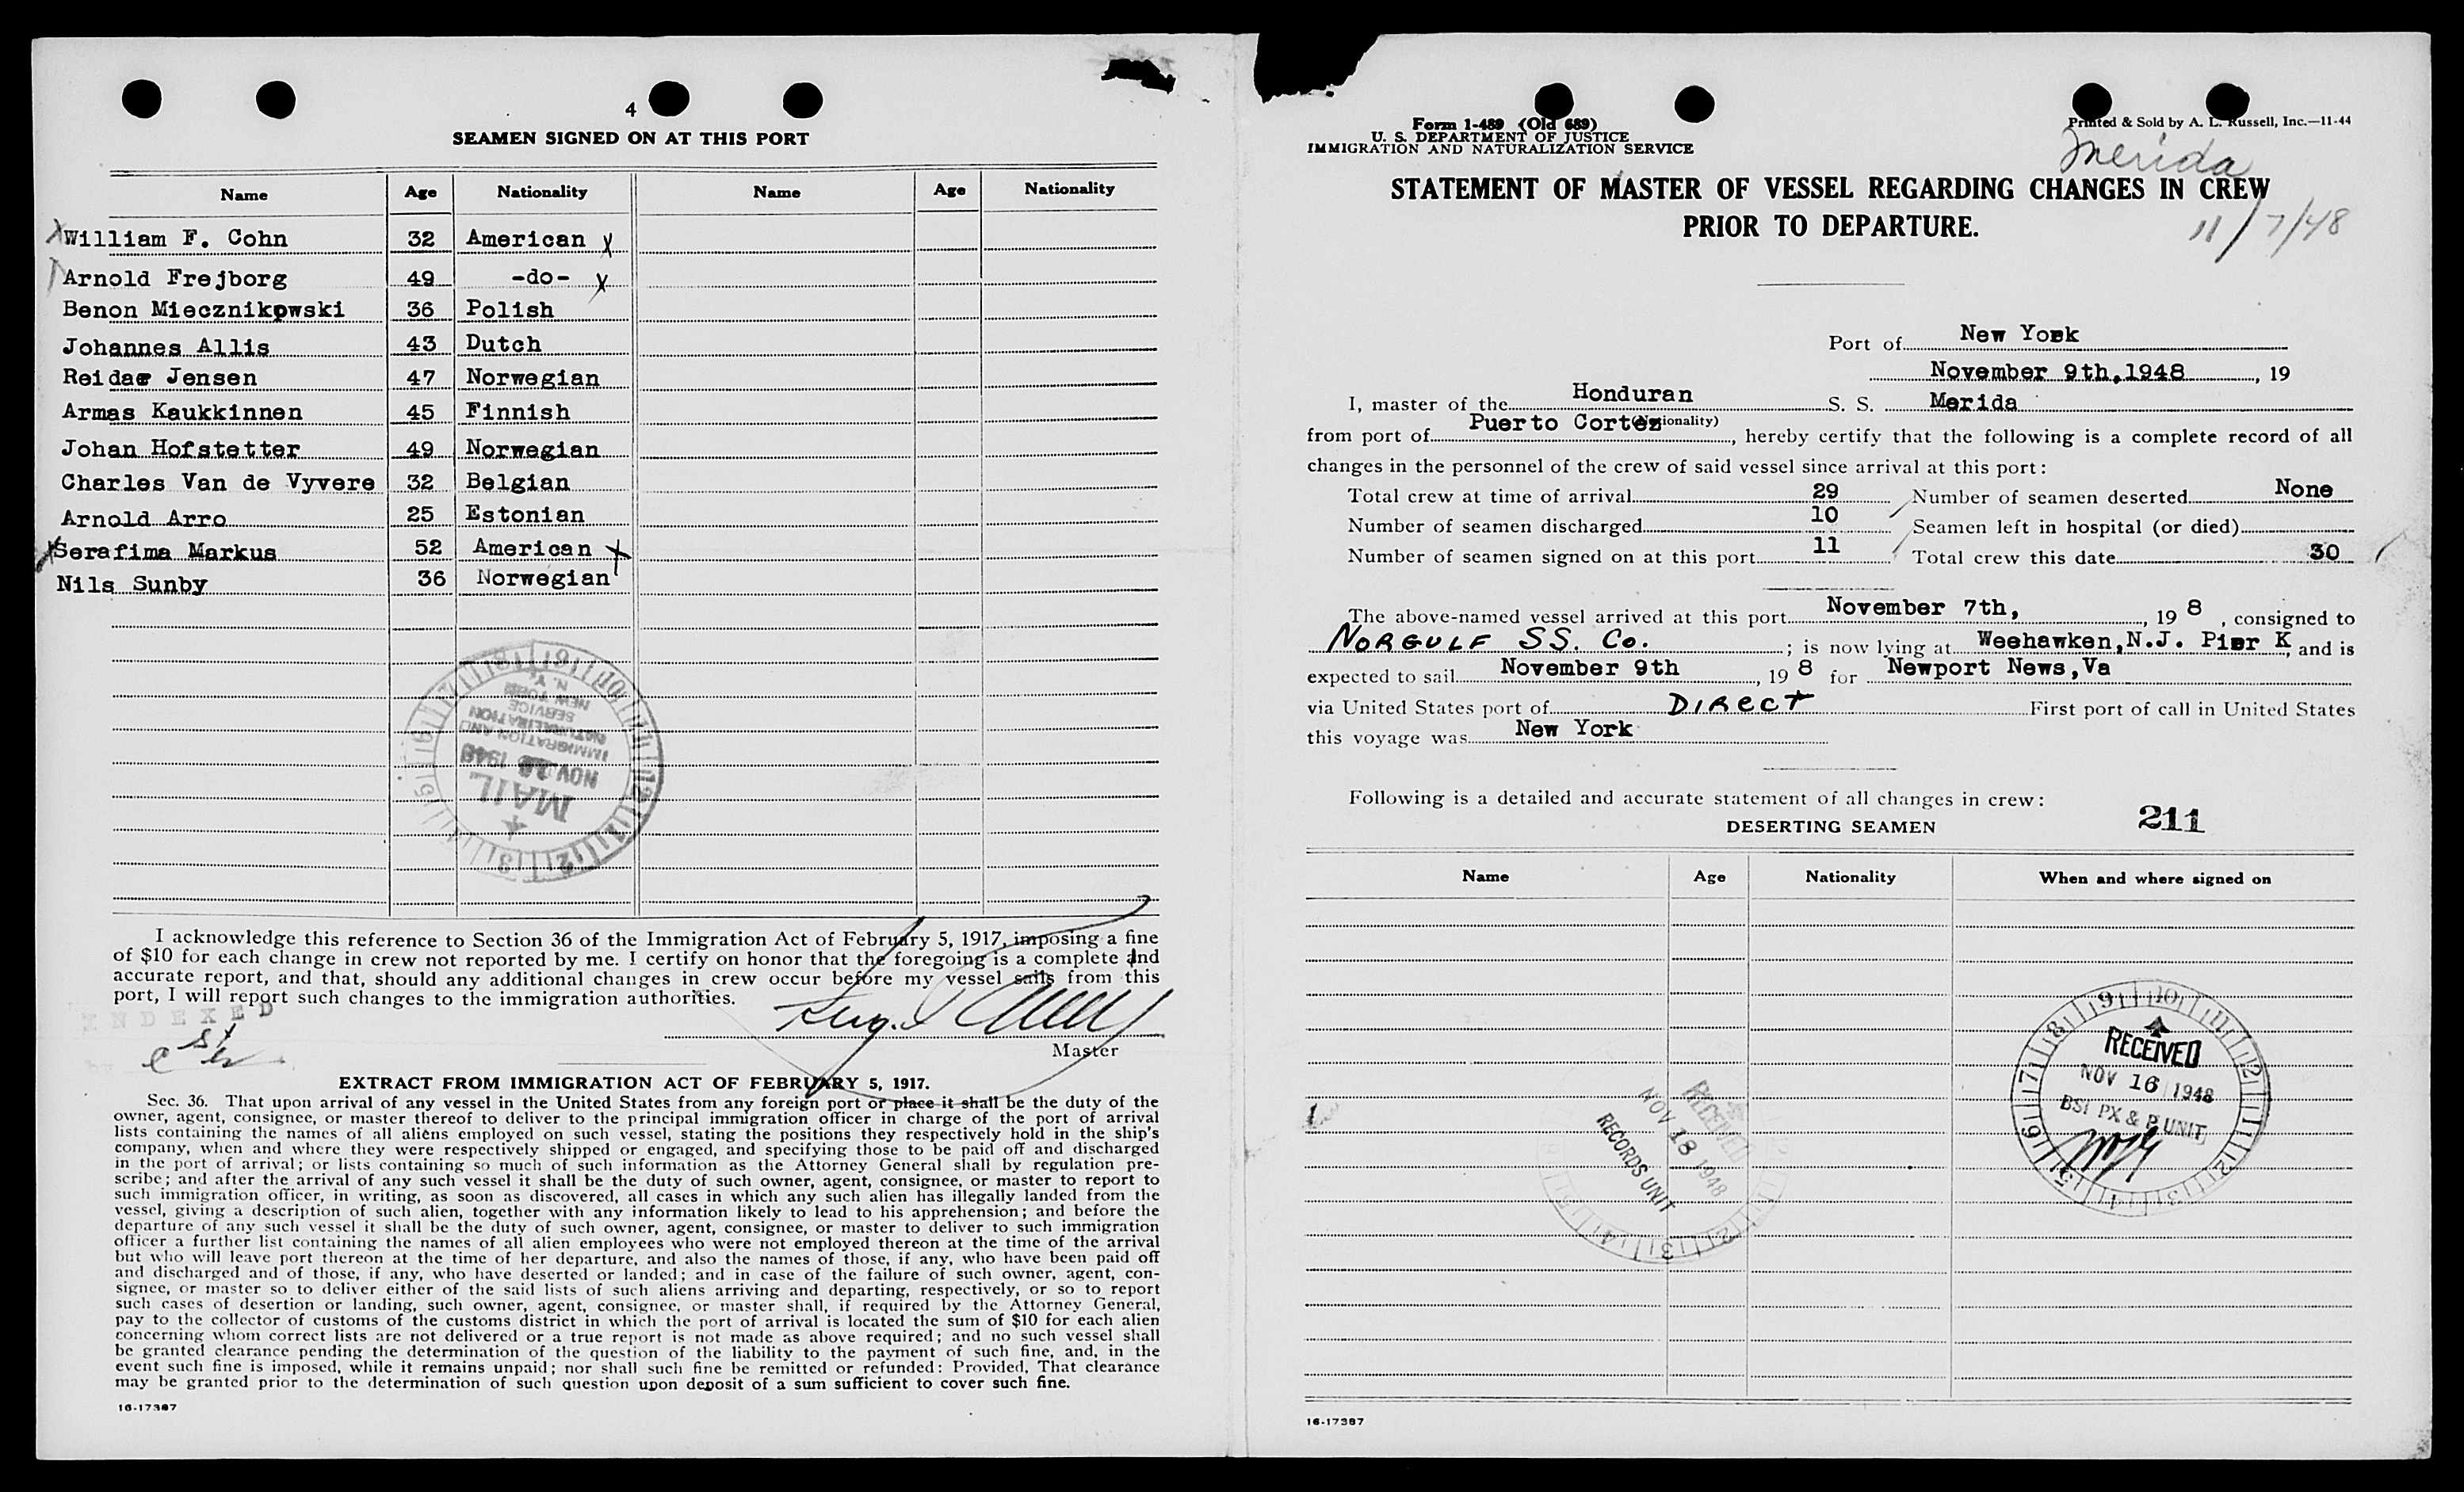 4
SEAMEN SIGNED ON AT THIS PORT
Name Age Nationality Name Age Nationality
William F. Cohn 32 American x
Arnold Frejborg 49 -do- x
Benon Miecznikowski 36 Polish
Johannes Allis 43 Dutch
Reidar Jensen 47 Norwegian
Armas Kaukkinnen 45 Finnish
Johan Hofstetter 49 Norwegian
Charles Van de Vyvere 32 Belgian
Arnold Arro 25 Estonian
xSerafima Markus 52 American x
Nils Sunby 36 Norwegian
N. Y.
NEW YORK
SERVICE
NATURALIZATION
IMMIGRATION AND
NOV 1948
MAIL
I acknowledge this reference to Section 36 of the Immigration Act of February 5, 1917, imposing a fine
of $10 for each change in crew not reported by me. I certify on honor that the foregoing is a complete and
accurate report, and that, should any additional changes in crew occur before my vessel sails from this
port, I will report such changes to the immigration authorities.
INDEXED
Master
EXTRACT FROM IMMIGRATION ACT OF FEBRUARY 5, 1917.
Sec. 36. That upon arrival of any vessel in the United States from any foreign port or place it shall be the duty of the
owner, agent, consignee, or master thereof to deliver to the principal immigration officer in charge of the port of arrival
lists containing the names of all aliens employed on such vessel, stating the positions they respectively hold in the ship's
company, when and where they were respectively shipped or engaged, and specifying those to be paid off and discharged
in the port of arrival; or lists containing so much of such information as the Attorney General shall by regulation pre-
scribe; and after the arrival of any such vessel it shall be the duty of such owner, agent, consignee, or master to report to
such immigration officer, in writing, as soon as discovered, all cases in which any such alien has illegally landed from the
vessel, giving a description of such alien, together with any information likely to lead to his apprehension; and before the
departure of any such vessel it shall be the duty of such owner, agent, consignee, or master to deliver to such immigration
officer a further list containing the names of all alien employees who were not employed thereon at the time of the arrival
but who will leave port thereon at the time of her departure, and also the names of those, if any, who have been paid off
and discharged and of those, if any, who have deserted or landed; and in case of the failure of such owner, agent, con-
signee, or master so to deliver either of the said lists of such aliens arriving and departing, respectively, or so to report
such cases of desertion or landing, such owner, agent, consignee, or master shall, if required by the Attorney General,
pay to the collector of customs of the customs district in which the port of arrival is located the sum of $10 for each alien
concerning whom correct lists are not delivered or a true report is not made as above required; and no such vessel shall
be granted clearance pending the determination of the question of the liability to the payment of such fine, and, in the
event such fine is imposed, while it remains unpaid; nor shall such fine be remitted or refunded: Provided, That clearance
may be granted prior to the determination of such question upon deposit of a sum sufficient to cover such fine.
16-17387
Form I-489 (Old 689)
U. S. DEPARTMENT OF JUSTICE
IMMIGRATION AND NATURALIZATION SERVICE
Printed & Sold by A. L. Russell, Inc.—11-44
Merida
STATEMENT OF MASTER OF VESSEL REGARDING CHANGES IN CREW
PRIOR TO DEPARTURE.
11/7/48
Port of New York
November 9th,1948, 19
I, master of the Honduran S. S. Merida
(Nationality)
from port of Puerto Cortez, hereby certify that the following is a complete record of all
changes in the personnel of the crew of said vessel since arrival at this port:
Total crew at time of arrival 29 Number of seamen deserted None
Number of seamen discharged 10 Seamen left in hospital (or died)
Number of seamen signed on at this port 11 Total crew this date 30
The above-named vessel arrived at this port November 7th, , 19 8 , consigned to
NORGULF SS. Co. ; is now lying at Weehawken,N.J. Pier K and is
expected to sail November 9th, 19 8 for Newport News,Va
via United States port of DIRECT First port of call in United States
this voyage was New York
Following is a detailed and accurate statement of all changes in crew:
DESERTING SEAMEN
211
Name Age Nationality When and where signed on
RECEIVED
NOV 16 1948
BSI PX & P UNIT
RECEIVED
NOV 18 1948
RECORDS UNIT
16-17387